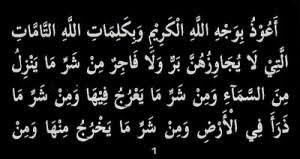 أَعُوْذُ بِوَجْهِ اللَّهِ الْكَرِيْمِ وَبِكَلِمَاتِ اللَّهِ التَّامَّاتِ
الَّتِيْ لَا يُجَاوِزُهُنَّ بَرٌّ وَلَا فَاجِرٌ مِنْ شَرِّ مَا يَنْزِلُ
مِنَ السَّمَآءِ وَمِنْ شَرِّ مَا يَعْرُجُ فِيْهَا وَمِنْ شَرِّ مَا
ذَرَأَ فِي الْأَرْضِ وَمِنْ شَرِّ مَا يَخْرُجُ مِنْهَا وَمِنْ
1